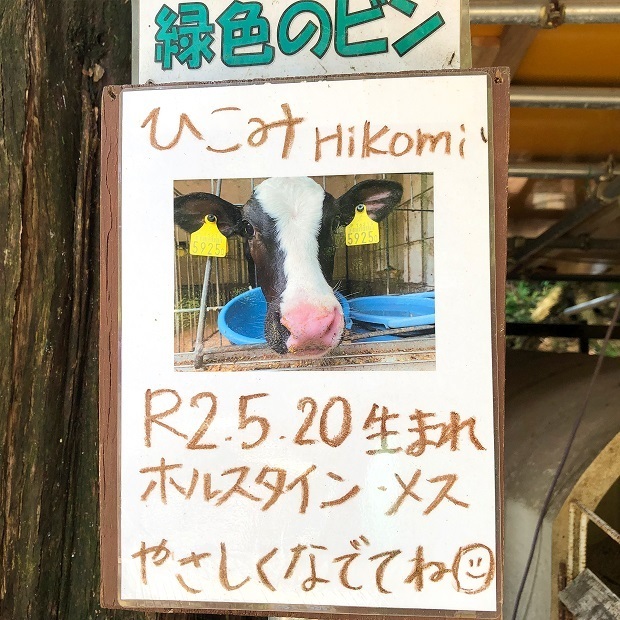 緑色のビン
ひこみ Hikomi
5925
5925
R2.5.20 生まれ
ホルスタイン・メス
やさしくなでてね